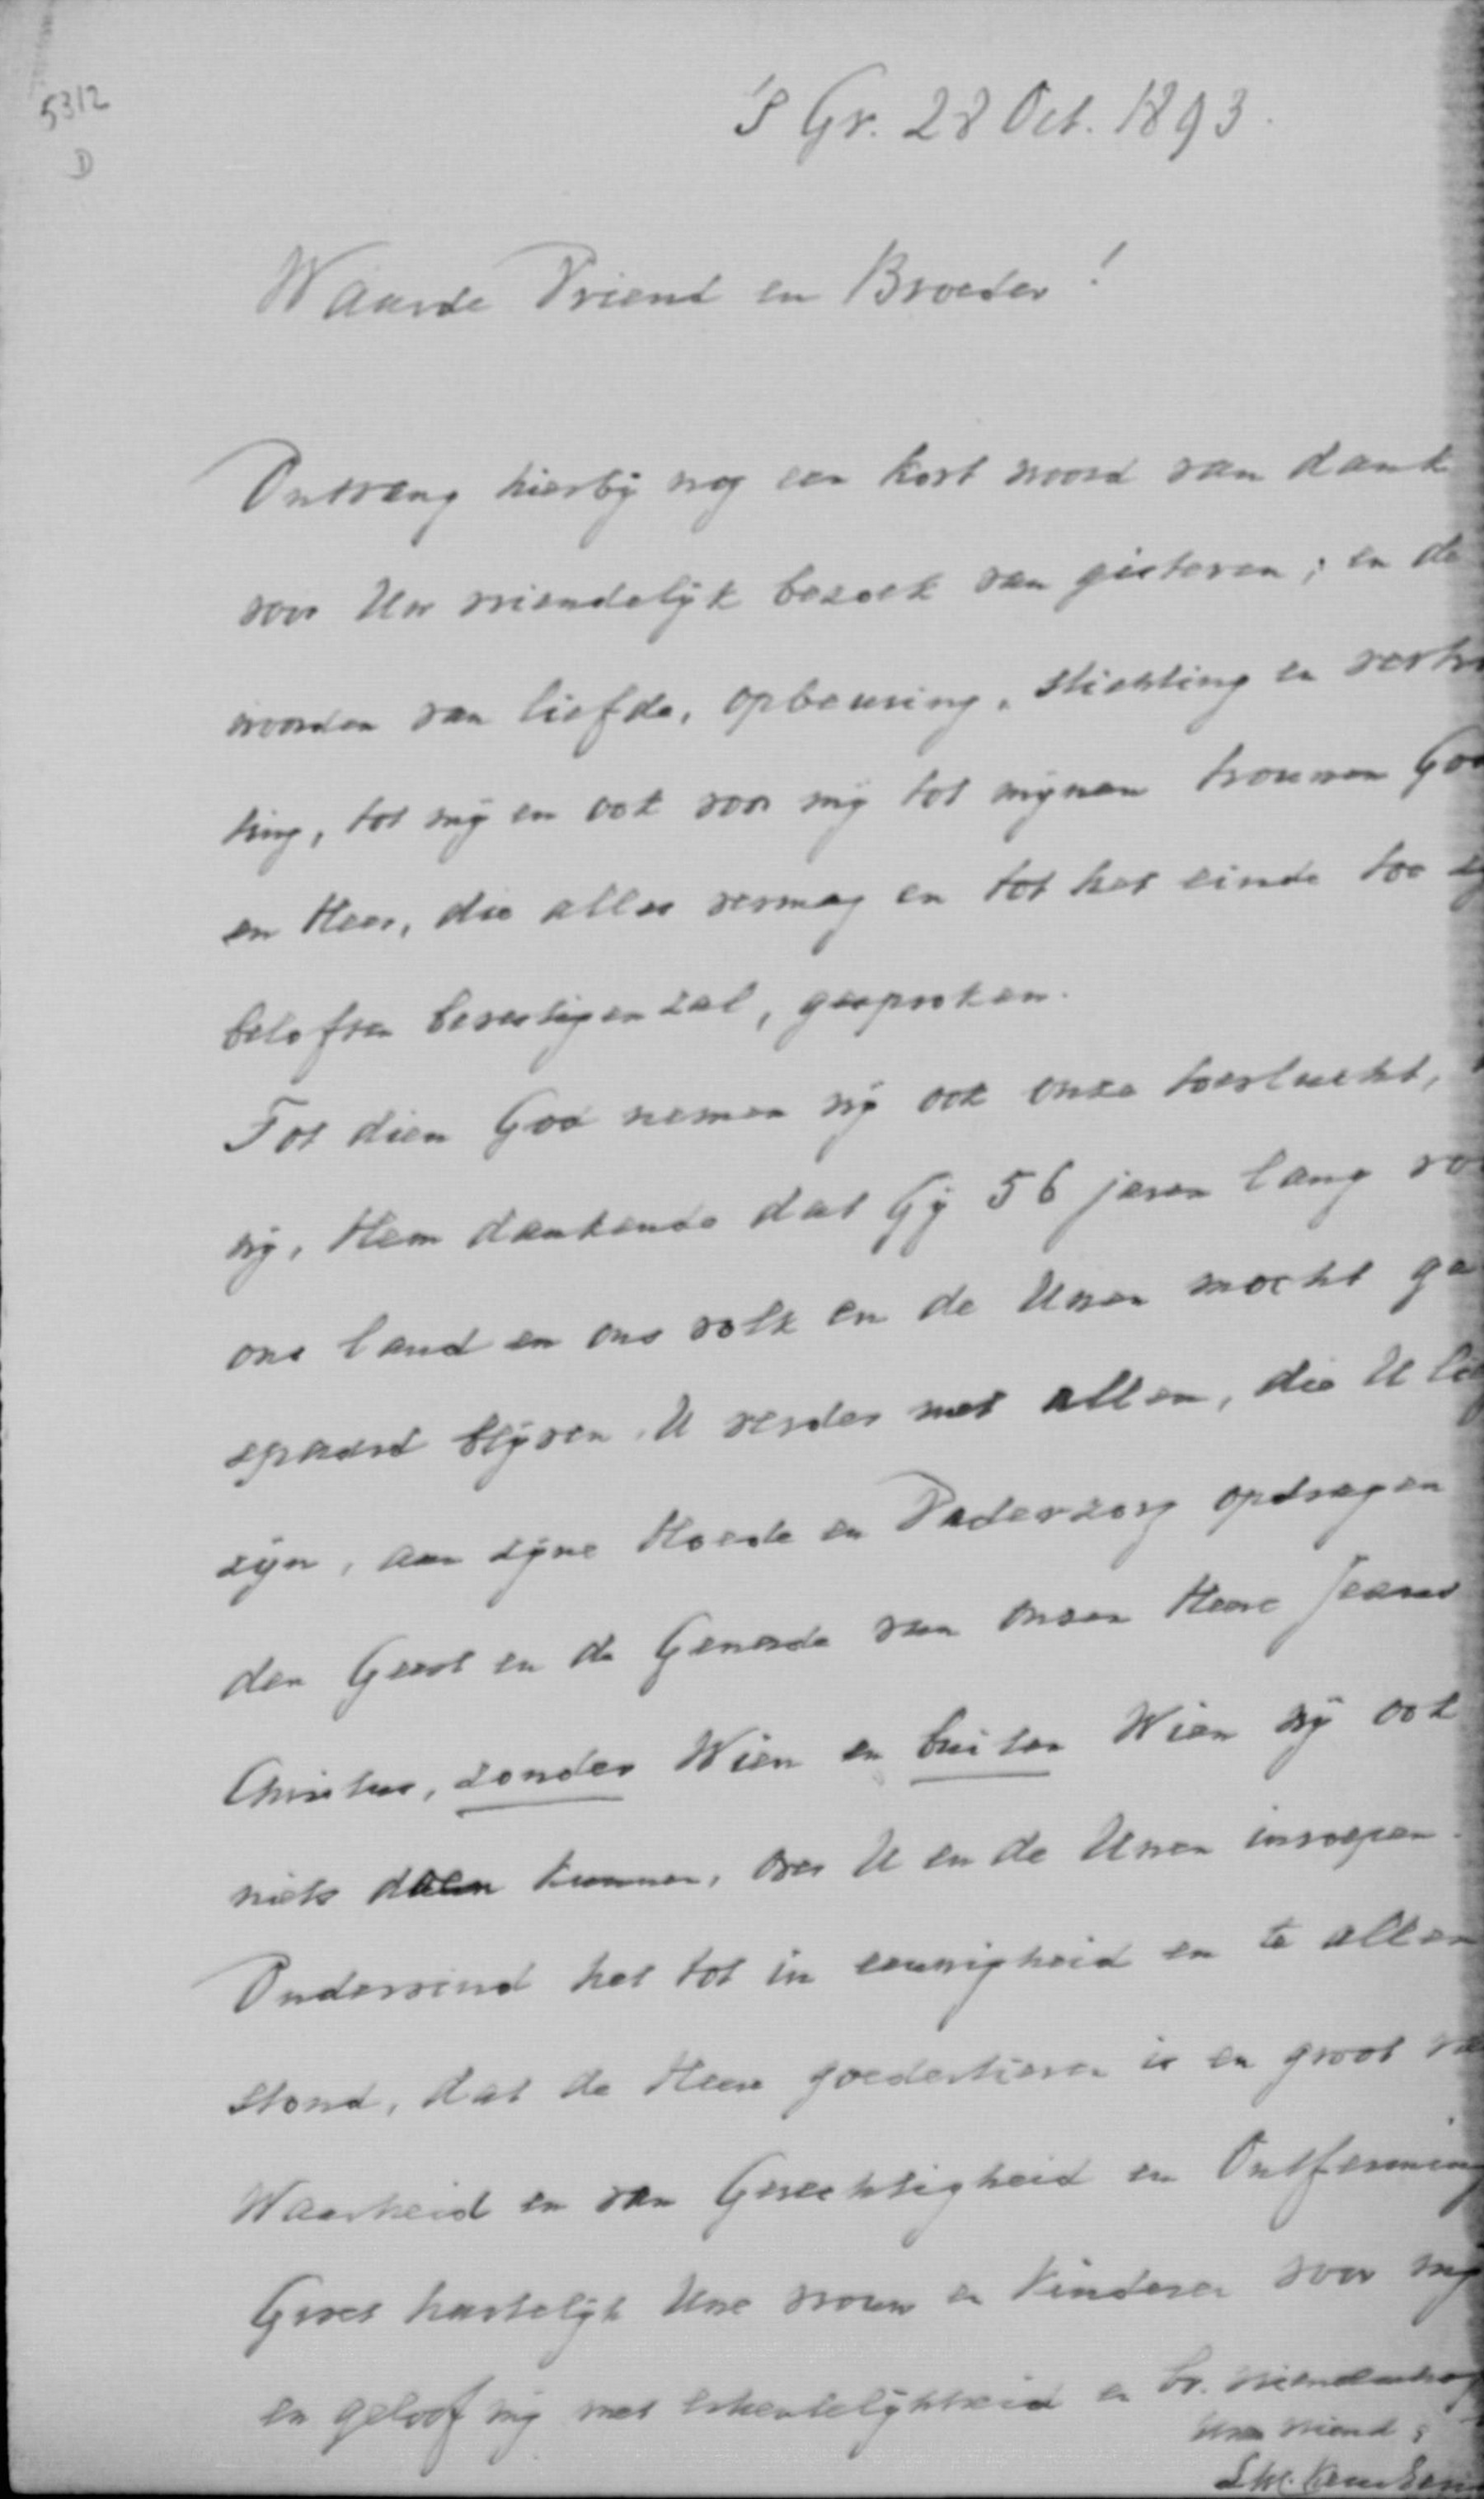 5312
D
's Gr. 28 Oct. 1893.
Waarde Vriend en Broeder!
Ontvang hierbij nog een kort woord van dank
voor Uw vriendelijk bezoek van gisteren; en de
woorden van liefde, opbeuring, stichting en verster
king, tot mij en ook voor mij tot mijnen trouwen God
en Heer, die alles vermag en tot het einde toe
beloften bevestigen zal, gesproken.
Tot dien God nemen wij ook onze toevlucht,
wij, Hem dankende dat Gij 56 jaren lang vo
ons land en ons volk en de Uwen mocht ge
spaard blijven. U verder met allen, die U lie
zijn, aan zijne Hoede en Vaderzorg opdragen
den Geest en de Genade van onzen Heere Jezus
Christus, zonder Wien en buiten Wien wij ook
niets doen kunnen, over U en de Uwen inroepen.
Ondervind het tot in eeuwigheid en te allen
stond, dat de Heere goedertieren is en groot va
Waarheid en van Gerechtigheid en Ontferming
Groet hartelijk Uwe vrouw en kinderen voor mij
en geloof mij met erkentelijkheid en br. vriendschap
Uw vriend,